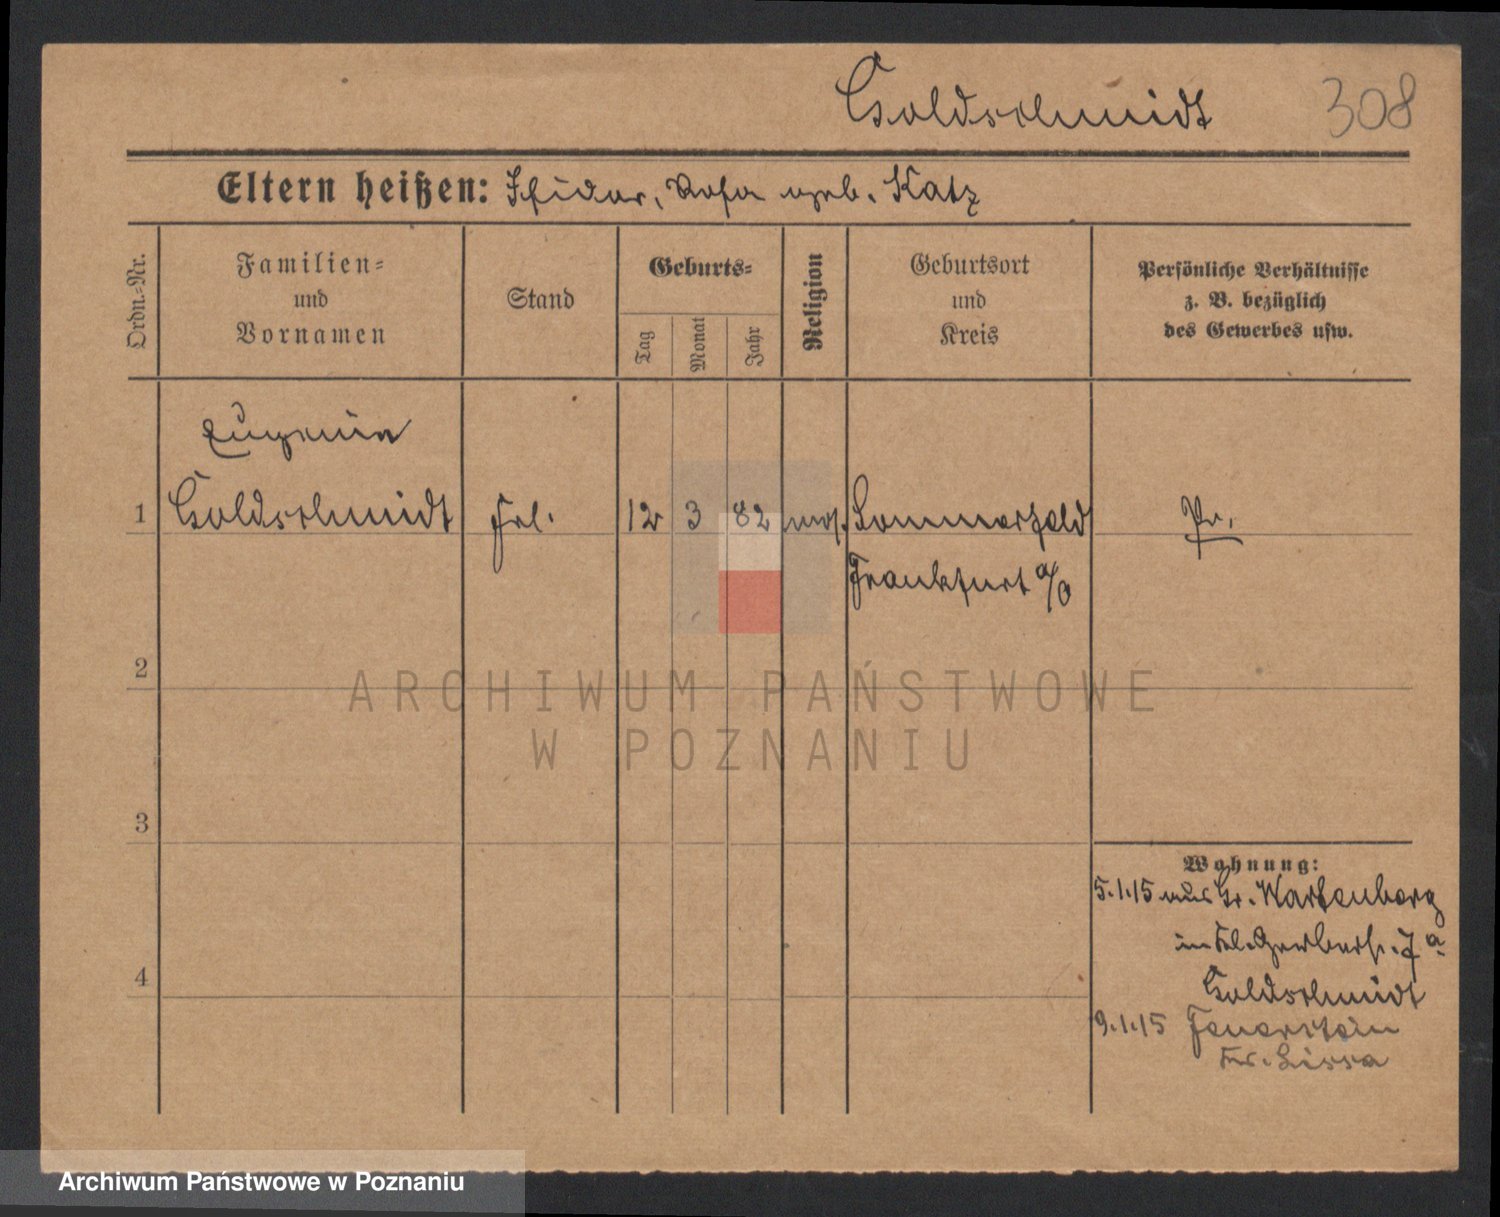 Goldschmidt 308
Eltern heißen: Isidor, Rosa geb. Katz
Ordn.=Nr.
Familien=
und
Vornamen
Stand
Geburts=
Tag
Monat
Jahr
Religion
Geburtsort
und
Kreis
Persönliche Verhältnisse
z. B. bezüglich
des Gewerbes usw.
Eugenie
1 Goldschmidt Frl. 12 3 82 mos. Sommerfeld Pr.
Frankfurt a/O
2
ARCHIWUM PAŃSTWOWE
W POZNANIU
3
Wohnung:
5.1.15 aus Gr. Wartenberg
in Kl. Gerberstr. 7a
4
Goldschmidt
9.1.15 Feuerstein
Kr. Lissa
Archiwum Państwowe w Poznaniu